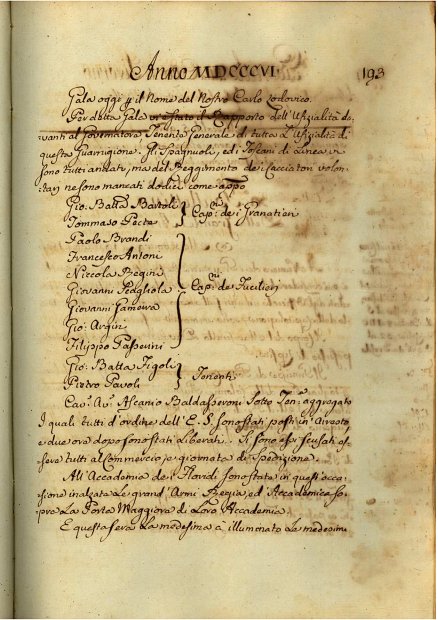 Anno MDCCCVI
193
Gala oggi p il Nome del Nostro Carlo Lodovico.
Per detta Gala vi è stato il Rapporto dell'Ufizialità da,
vanti al Governatore Tenente Generale di tutta l'Ufizialità di
questa Guarnigione. Gli Spagnuoli, ed i Toscani di Linea vi
sono tutti andati, ma del Reggimento dei Cacciatori volon,
tarj ne sono mancati dodici come appo
Gio: Batta Bartoli
Tommaso
Cap:ni dei Granatieri
Paolo Brandi
Francesco Antoni
Niccola Regini
Giovanni
Giovanni Gamerra
Gio: Argin
Filippo Passerini
Cap:ni de Fucilieri
Gio: Batta Tigoli
Pietro Pavoli
Tenenti
Cav.e Av: Ascanio Baldasseroni Sotto Ten.e aggregato
I quali tutti d'ordine dell'E. S. sono stati posti in Arresto
e due ore dopo sono stati liberati. Si sono essi scusati es,
sere tutti al Commercio, e giornata di Spedizione.
All'Accademia de i Floridi sono state in quest'occa,
sione inalzate le grand'Armi Regia, ed Accademica so,
pra La Porta Maggiore di Loro Accademia.
E questa sera La medesima à illuminato Le medesime